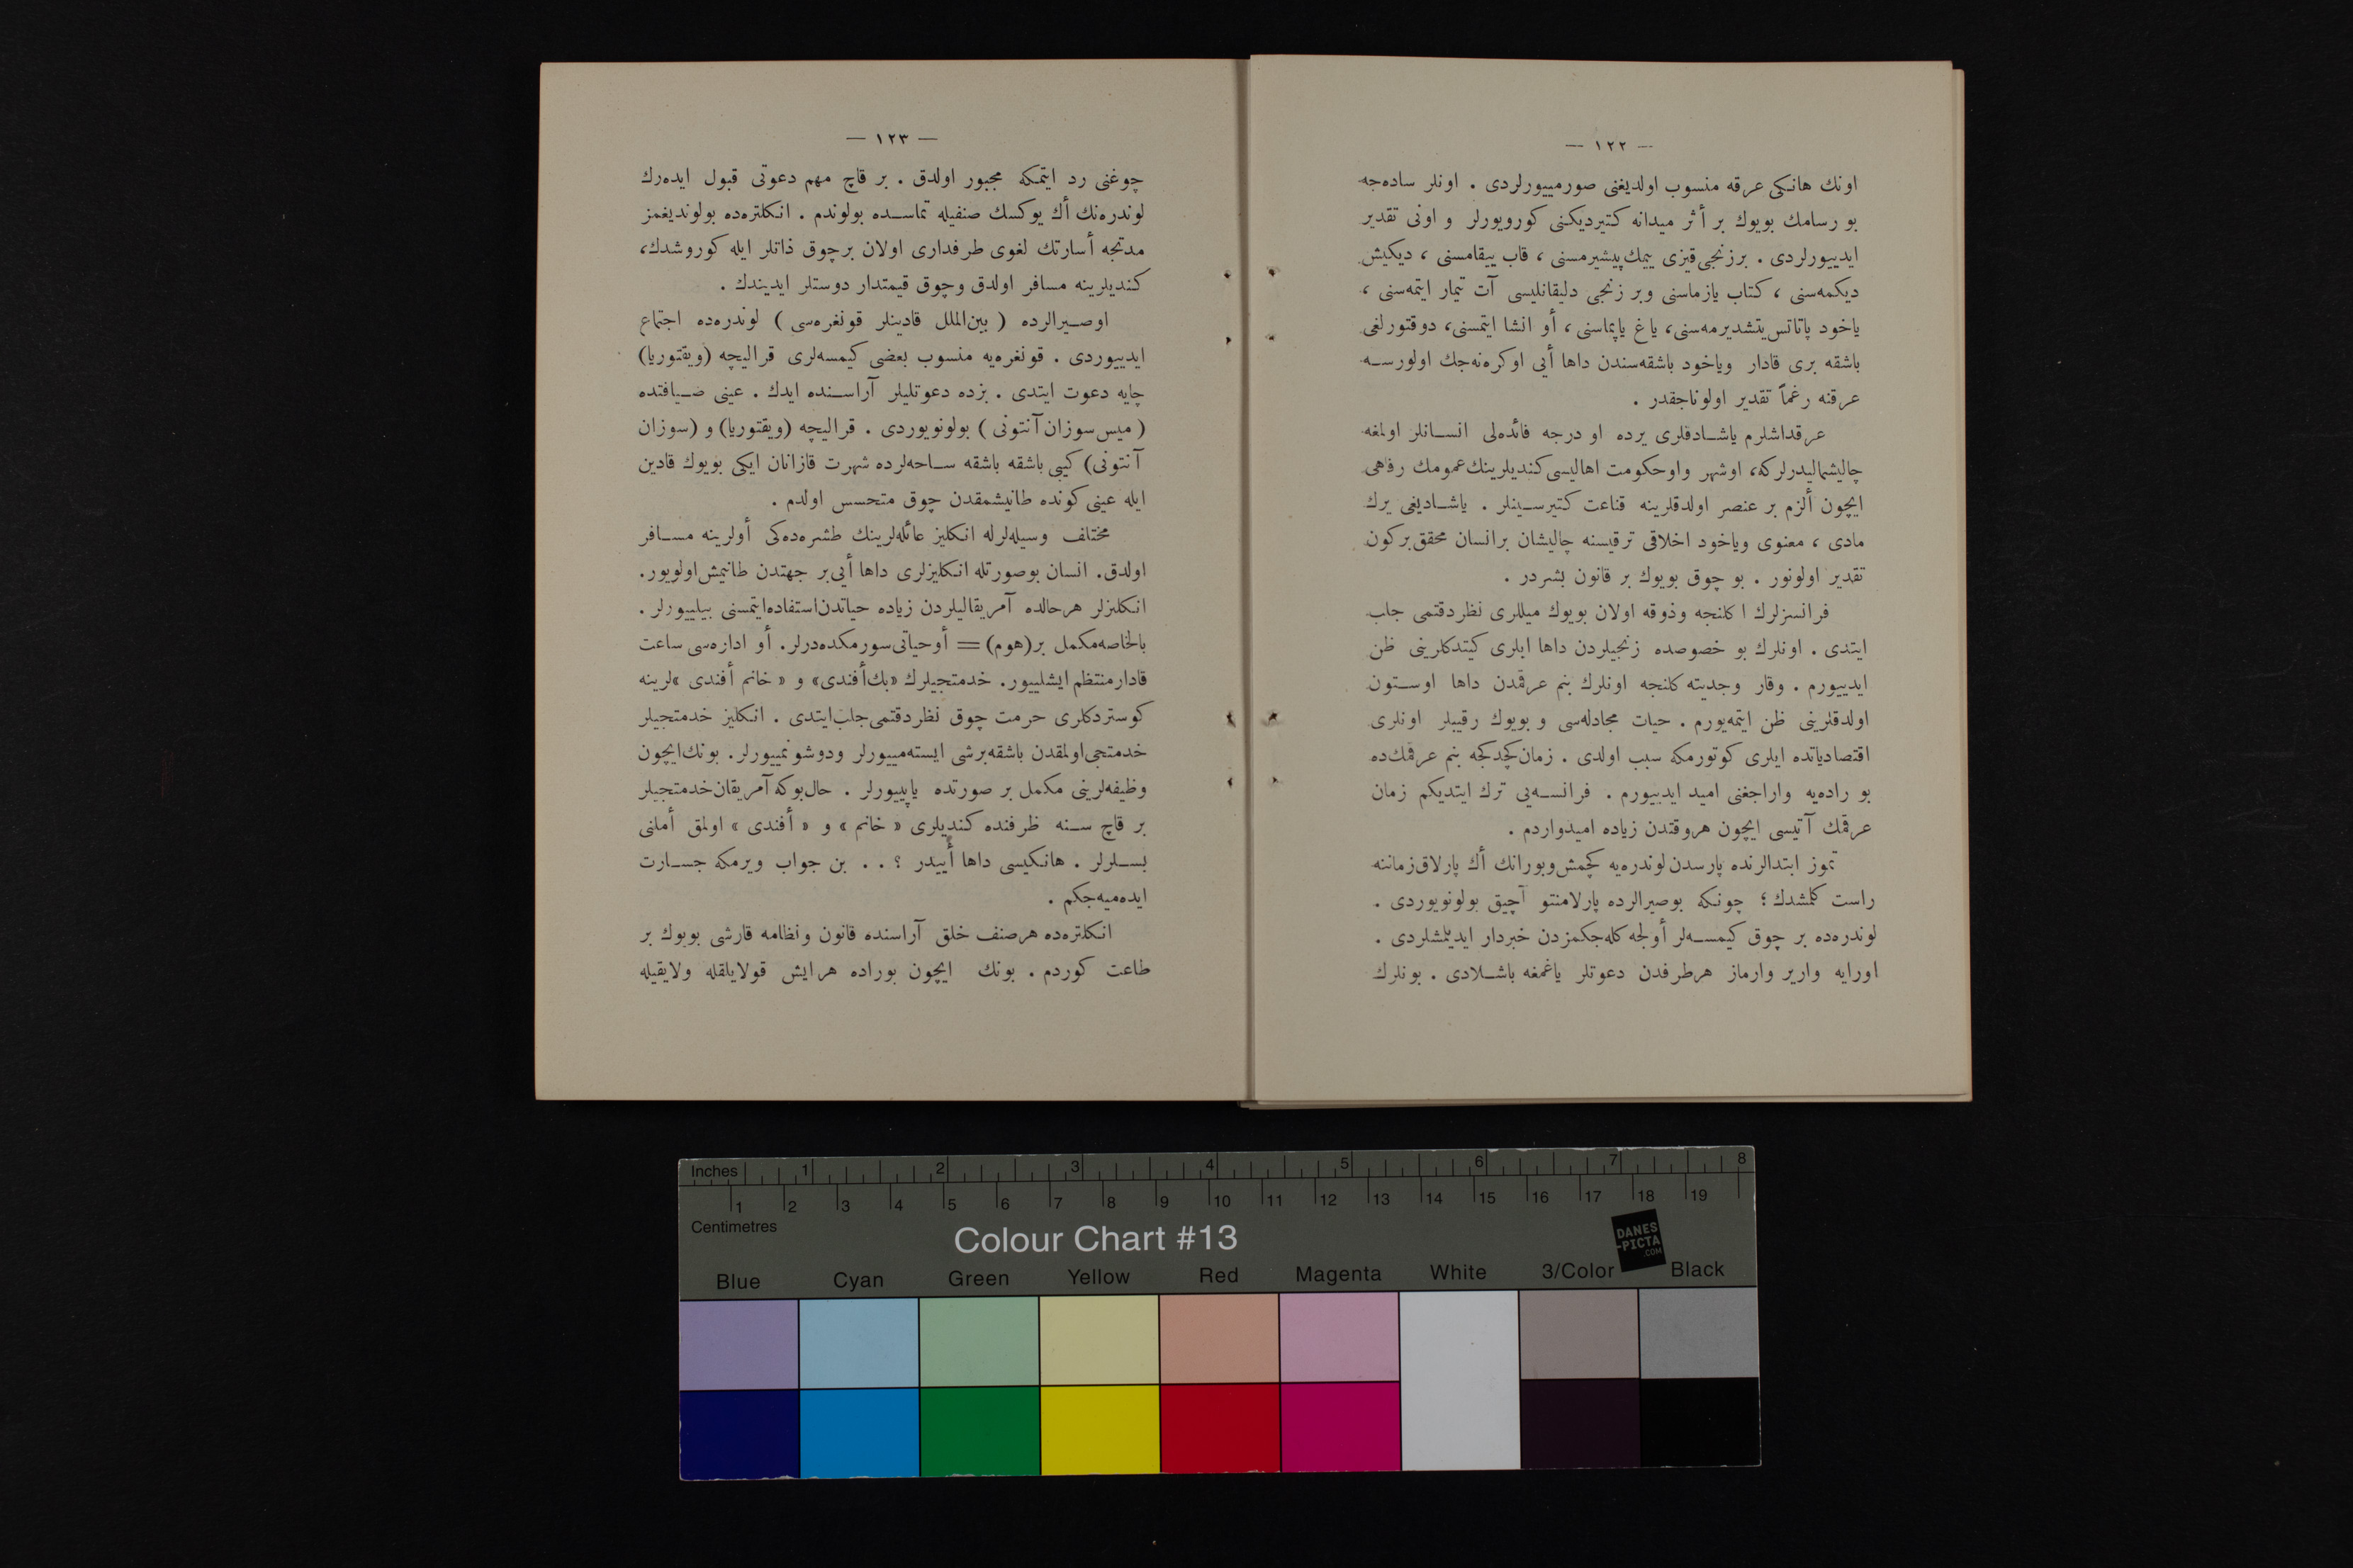 — ١٢٢ —
اونك هانكی عرقه منسوب اولديغنی صورمييورلردی . اونلر ساده‌جه
بو رسامك بويوك بر أثر ميدانه كتيرديكنی كورويورلر و اونی تقدير
ايدييورلردی . برزنجی قيزی ييمك پيشيرمسنی ، قاب ييقامسنی ، ديكيش
ديكمه‌سنی ، كتاب يازماسنی وبر زنجی دليقانليسی آت تيمار ايتمه‌سنی ،
ياخود پاتاتس يتشديرمه‌سنی، ياغ ياپماسنی ، أو انشا ايتمسنی، دوقتورلغی
باشقه بری قادار وياخود باشقه‌سندن داها أيی اوكره‌نه‌جك اولورسه
عرقنه رغماً تقدير اولوناجقدر .
عرقداشلرم ياشادقلری يرده او درجه فائده‌لی انسانلر اولمغه
چاليشماليدرلركه، اوشهر واوحكومت اهاليسی كنديلرينك عمومك رفاهی
ايچون ألزم بر عنصر اولدقلرينه قناعت كتيرسينلر . ياشاديغی يرك
مادی ، معنوی وياخود اخلاقی ترقيسنه چاليشان برانسان محقق بركون
تقدير اولونور . بو چوق بويوك بر قانون بشردر .
فرانسزلرك اكلنجه وذوقه اولان بويوك ميللری نظردقتمی جلب
ايتدی . اونلرك بو خصوصده زنجيلردن داها ايلری كيتدكلرينی ظن
ايدييورم . وقار وجديته كلنجه اونلرك بنم عرقمدن داها اوستون
اولدقلرينی ظن ايتمه‌يورم . حيات مجادله‌سی و بويوك رقيبلر اونلری
اقتصادياتده ايلری كوتورمكه سبب اولدی . زمان كچدكجه بنم عرقمك‌ده
بو راده‌يه واراجغنی اميد ايدييورم . فرانسه‌يی ترك ايتديكم زمان
عرقمك آتيسی ايچون هروقتدن زياده اميدواردم .
تموز ابتدالرنده پارسدن لوندره‌يه كچمش وبورانك أك پارلاق زماننه
راست كلمشدك ؛ چونكه بوصيرالرده پارلامنتو آچيق بولونويوردی .
لوندره‌ده بر چوق كيمسه‌لر أولجه كله‌جكمزدن خبردار ايديلمشلردی .
اورايه وارير وارماز هرطرفدن دعوتلر ياغمغه باشلادی . بونلرك
— ١٢٣ —
چوغنی رد ايتمكه مجبور اولدق . بر قاچ مهم دعوتی قبول ايده‌رك
لوندره‌نك أك يوكسك صنفيله تماسده بولوندم . انكلتره‌ده بولونديغمز
مدتجه أسارتك لغوی طرفداری اولان برچوق ذاتلر ايله كوروشدك،
كنديلرينه مسافر اولدق وچوق قيمتدار دوستلر ايديندك .
اوصيرالرده ( بين‌الملل قادينلر قونغره‌سی ) لوندره‌ده اجتماع
ايدييوردی . قونغره‌يه منسوب بعضی كيمسه‌لری قراليچه (ويقتوريا)
چايه دعوت ايتدی . بزده دعوتليلر آراسنده ايدك . عينی ضيافتده
( ميس سوزان آنتونی ) بولونويوردی . قراليچه (ويقتوريا) و (سوزان
آنتونی) كيبی باشقه باشقه ساحه‌لرده شهرت قازانان ايكی بويوك قادين
ايله عينی كونده طانيشمقدن چوق متحسس اولدم .
مختلف وسيله‌لرله انكليز عائله‌لرينك طشره‌ده‌كی أولرينه مسافر
اولدق. انسان بوصورتله انكليزلری داها أيی بر جهتدن طانيمش اولويور.
انكليزلر هرحالده آمريقاليلردن زياده حياتدن استفاده ايتمسنی بيلييورلر .
بالخاصه مكمل بر (هوم) = أوحياتی سورمكده‌درلر. أو اداره‌سی ساعت
قادار منتظم ايشلييور. خدمتجيلرك «بك أفندی» و «خانم أفندی» لرينه
كوستردكلری حرمت چوق نظردقتمی جلب ايتدی . انكليز خدمتجيلر
خدمتجی اولمقدن باشقه برشی ايسته‌مييورلر ودوشونمييورلر. بونك ايچون
وظيفه‌لرينی مكمل بر صورتده ياپييورلر . حال بوكه آمريقان خدمتجيلر
بر قاچ سنه ظرفنده كنديلری « خانم » و « أفندی » اولمق أملنی
بسلرلر . هانكيسی داها أييدر ؟ . . بن جواب ويرمكه جسارت
ايده‌ميه‌جكم .
انكلتره‌ده هرصنف خلق آراسنده قانون ونظامه قارشی بويوك بر
طاعت كوردم . بونك ايچون بوراده هرايش قولايلقله ولايقيله
Inches 1 2 3 4 5 6 7 8
1 2 3 4 5 6 7 8 9 10 11 12 13 14 15 16 17 18 19
Centimetres
Colour Chart #13
DANES
-PICTA
.COM
Blue Cyan Green Yellow Red Magenta White 3/Color Black